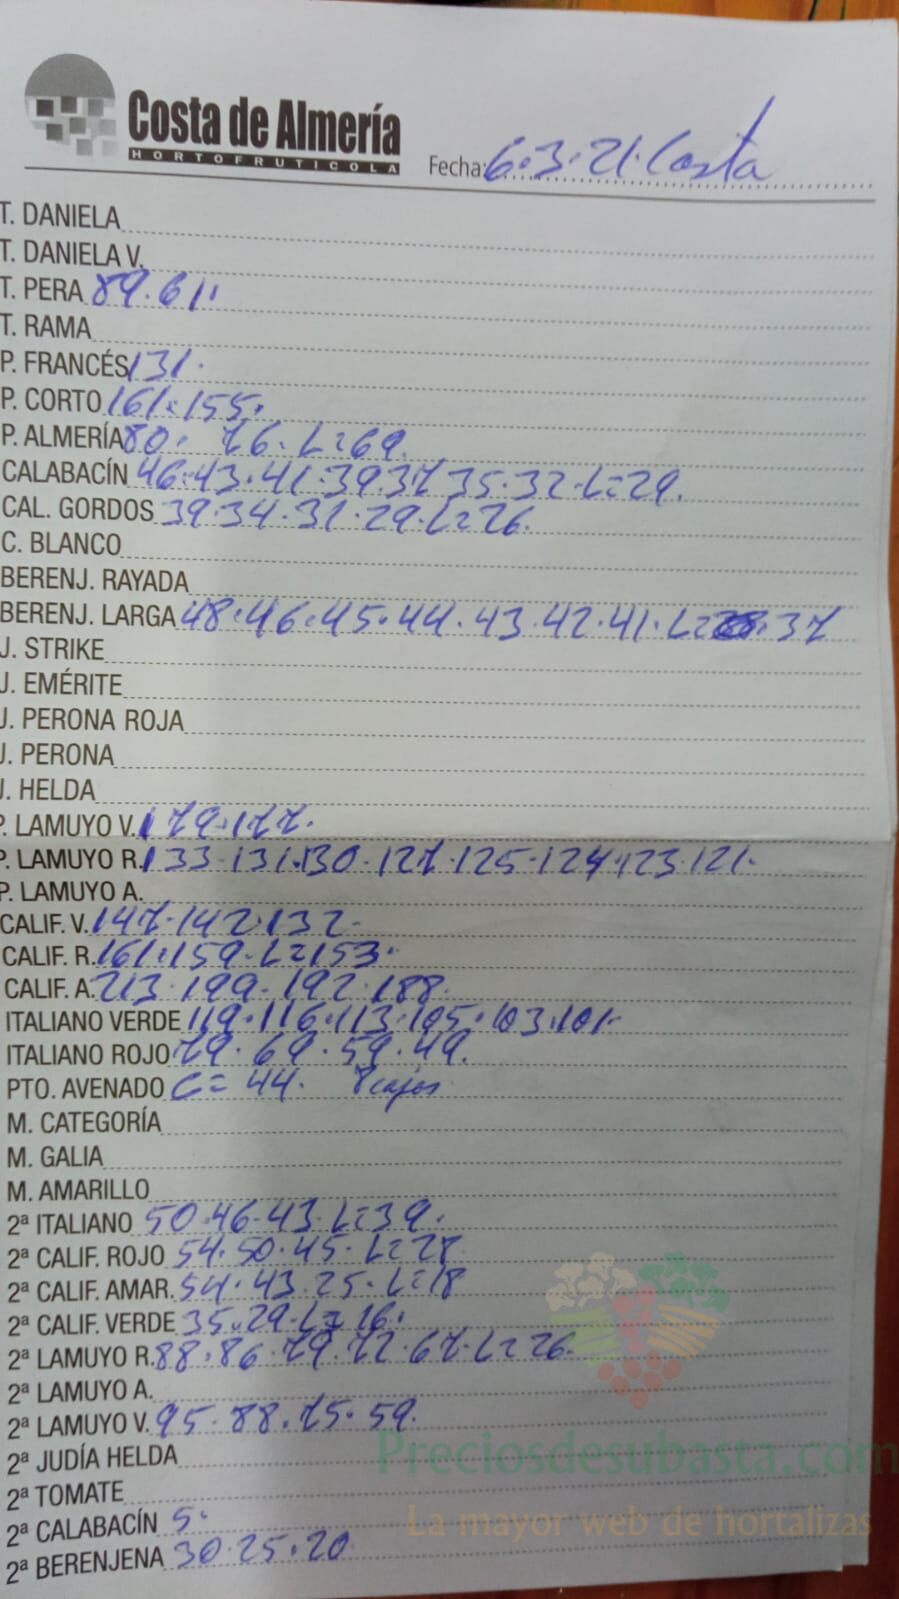 Costa de Almería
HORTOFRUTICOLA
Fecha: 6.3.21 Costa
T. DANIELA
T. DANIELA V.
T. PERA 89.61.
T. RAMA
P. FRANCÉS 131.
P. CORTO 161.155.
P. ALMERÍA 80. 76. L=69.
CALABACÍN 46.43.41.39.37 35.32.L=29.
CAL. GORDOS 39.34.31.29.L=26.
C. BLANCO
BERENJ. RAYADA
BERENJ. LARGA 48.46.45.44.43.42.41.L= 37
J. STRIKE
J. EMÉRITE
J. PERONA ROJA
J. PERONA
J. HELDA
P. LAMUYO V. 179.177.
P. LAMUYO R. 133.131.130.127.125.124.123.121.
P. LAMUYO A.
CALIF. V. 147.142.132.
CALIF. R. 161.159.L=153.
CALIF. A. 213.199.192.188.
ITALIANO VERDE 119.116.113.105.103.101.
ITALIANO ROJO 79.69.59.49.
PTO. AVENADO C=44. 8 cajas.
M. CATEGORÍA
M. GALIA
M. AMARILLO
2ª ITALIANO 50.46.43.L=39.
2ª CALIF. ROJO 54.50.45.L=28
2ª CALIF. AMAR. 54.43.25.L=18
2ª CALIF. VERDE 35.29.L=16.
2ª LAMUYO R. 88.86.79.72.67.L=26.
2ª LAMUYO A.
2ª LAMUYO V. 95.88.75.59.
2ª JUDÍA HELDA
2ª TOMATE
2ª CALABACÍN 5.
2ª BERENJENA 30.25.20
Preciosdesubasta.com
La mayor web de hortalizas